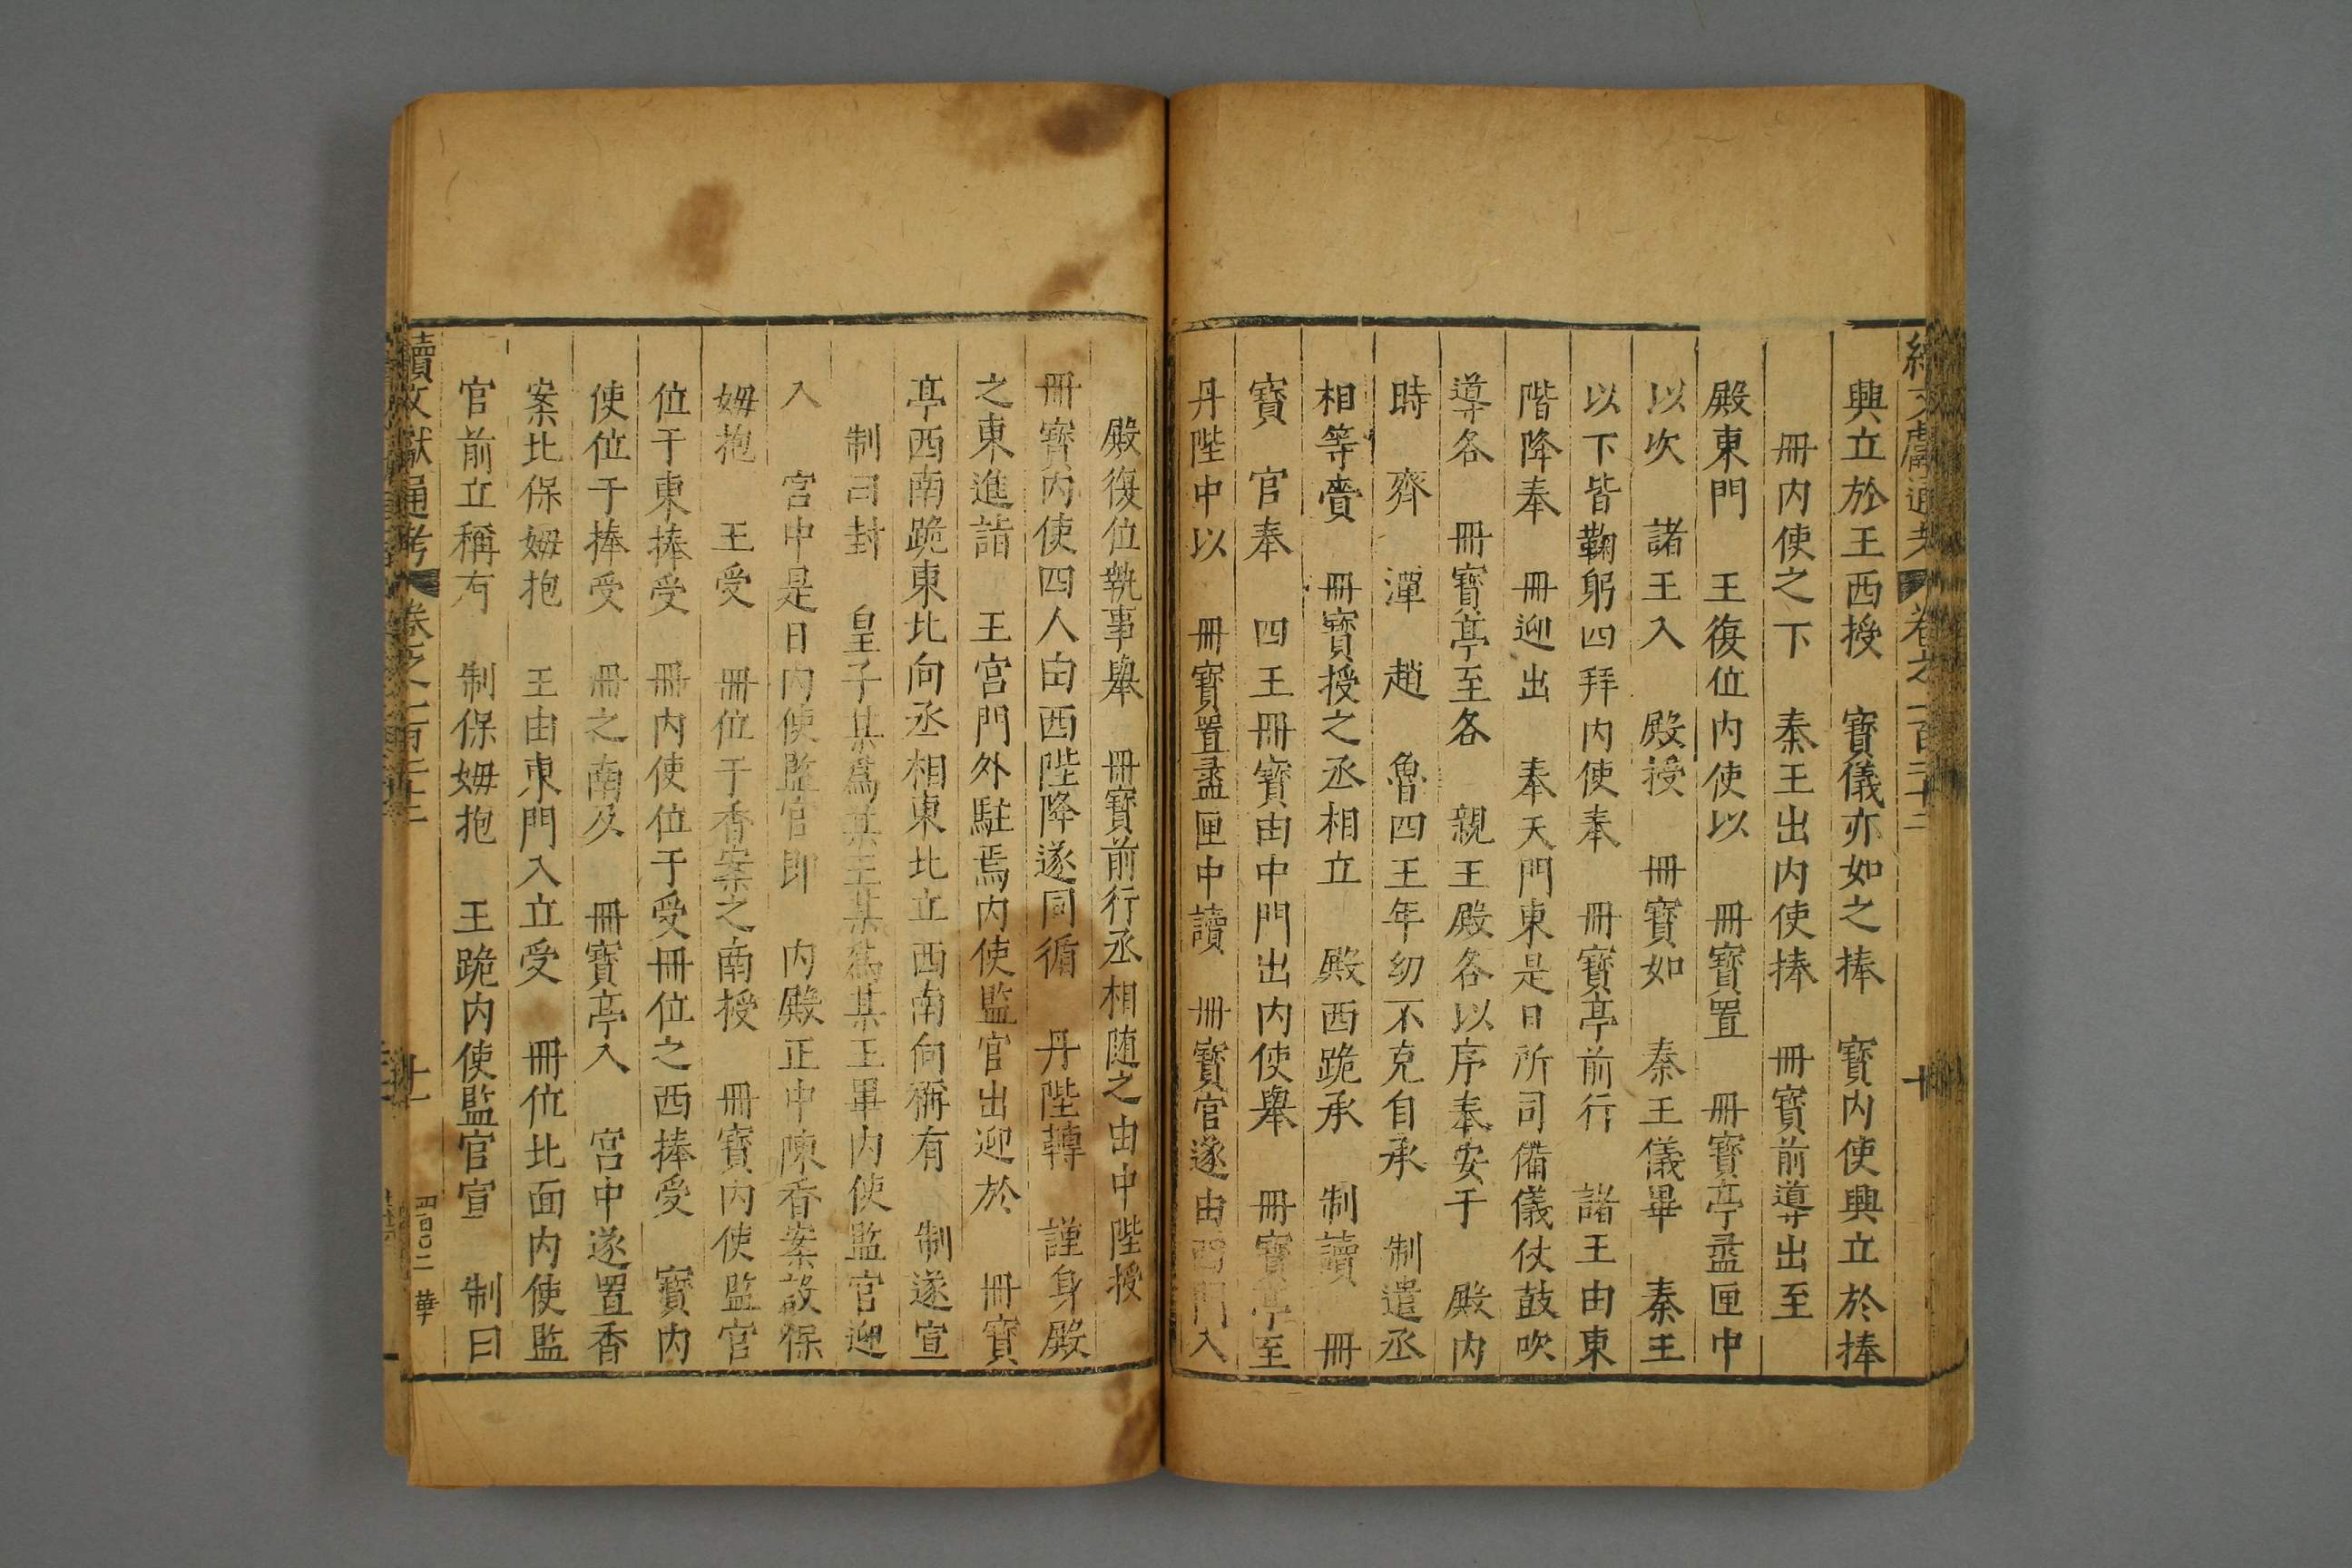 續文獻通考 卷之一百二十二 十
興立於王西授 寶儀亦如之捧 寶內使興立於捧
冊內使之下 秦王出內使捧 冊寶前導出至
殿東門 王復位內使以 冊寶置 冊寶亭盝匣中
以次 諸王入 殿授 冊寶如 秦王儀畢 秦王
以下皆鞠躬四拜內使奉 冊寶亭前行 諸王由東
階降奉 冊迎出 奉天門東是日所司備儀仗鼓吹
導各 冊寶亭至各 親王殿各以序奉安于 殿內
時 齊 潭 趙 魯四王年幼不克自承 制遣丞
相等賫 冊寶授之丞相立 殿西跪承 制讀 冊
寶 官奉 四王冊寶由中門出內使舉 冊寶亭至
丹陛中以 冊寶置盝匣中讀 冊寶官遂由西門入
殿復位執事舉 冊寶前行丞相随之由中陛授
冊寶內使四人由西陛降遂同循 丹陛轉 謹身殿
之東進詣 王宮門外駐焉內使監官出迎於 冊寶
亭西南跪東北向丞相東北立西南向稱有 制遂宣
制曰封 皇子某爲某王某爲某王畢內使監官迎
入 宮中是日內使監官即 內殿正中陳香案設保
姆抱 王受 冊位于香案之南授 冊寶內使監官
位于東捧受 冊內使位于受冊位之西捧受 寶內
使位于捧受 冊之南及 冊寶亭入 宮中遂置香
案北保姆抱 王由東門入立受 冊位北面內使監
官前立稱有 制保姆抱 王跪內使監官宣 制曰
續文獻通考 卷之一百二十二 十一 四百〇二 華